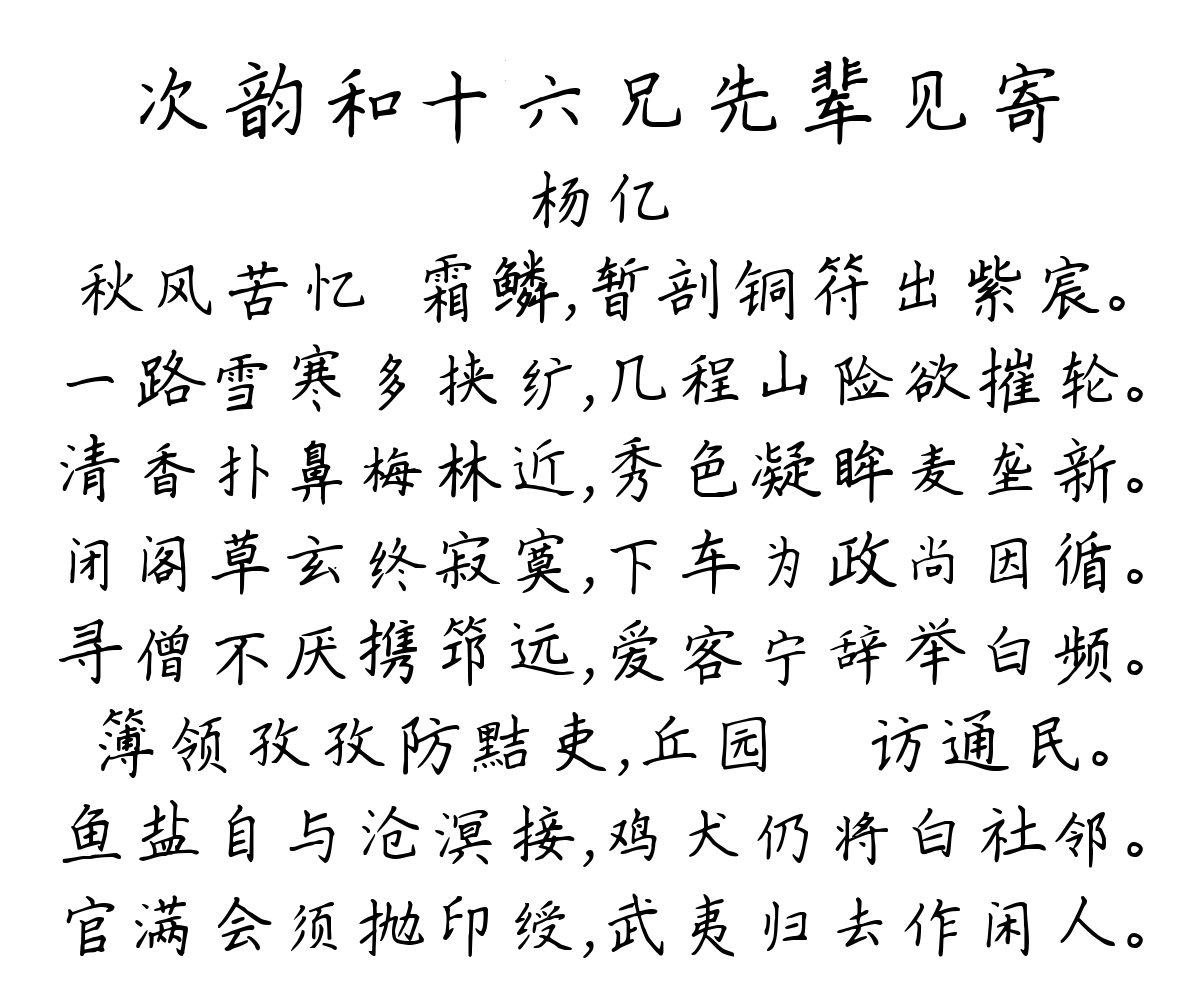 次韵和十六兄先辈见寄
杨亿
秋风苦忆 霜鳞,暂剖铜符出紫宸。
一路雪寒多挟纩,几程山险欲摧轮。
清香扑鼻梅林近,秀色凝眸麦垄新。
闭阁草玄终寂寞,下车为政尚因循。
寻僧不厌携筇远,爱客宁辞举白频。
簿领孜孜防黠吏,丘园 访通民。
鱼盐自与沧溟接,鸡犬仍将白社邻。
官满会须抛印绶,武夷归去作闲人。